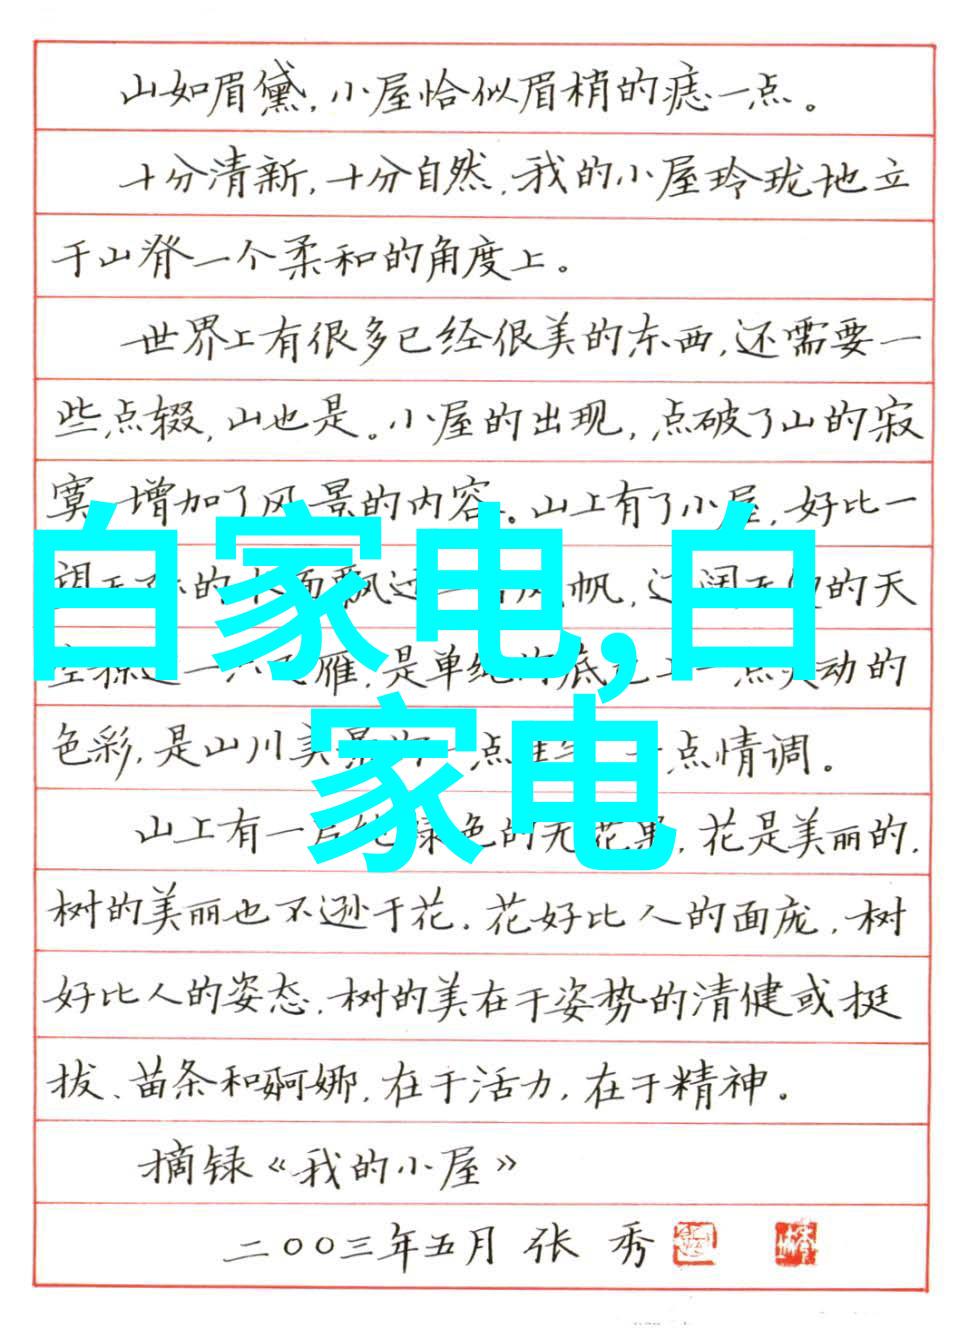 山如眉黛,小屋恰似眉梢的痣一点。
十分清新,十分自然,我的小屋玲珑地立
于山脊一个柔和的角度上。
世界上有很多已经很美的东西,还需要一
些点缀,山也是。小屋的出现,点破了山的寂
寞,增加了风景的内容。山上有了小屋,好比一
望无的水面飘过一帆,辽阔无的天
白家电,白
掠过一雁,是单纯的底一点动的
色彩,是山川美一点一点情调。
家电
山上有一片绿色的无花果,花是美丽的,
树的美丽也不逊于花。花好比人的面庞,树
好比人的姿态,树的美在于姿势的清健或挺
拔、苗条和婀娜,在于活力,在于精神。
摘录《我的小屋》
二〇〇三年五月 张 秀